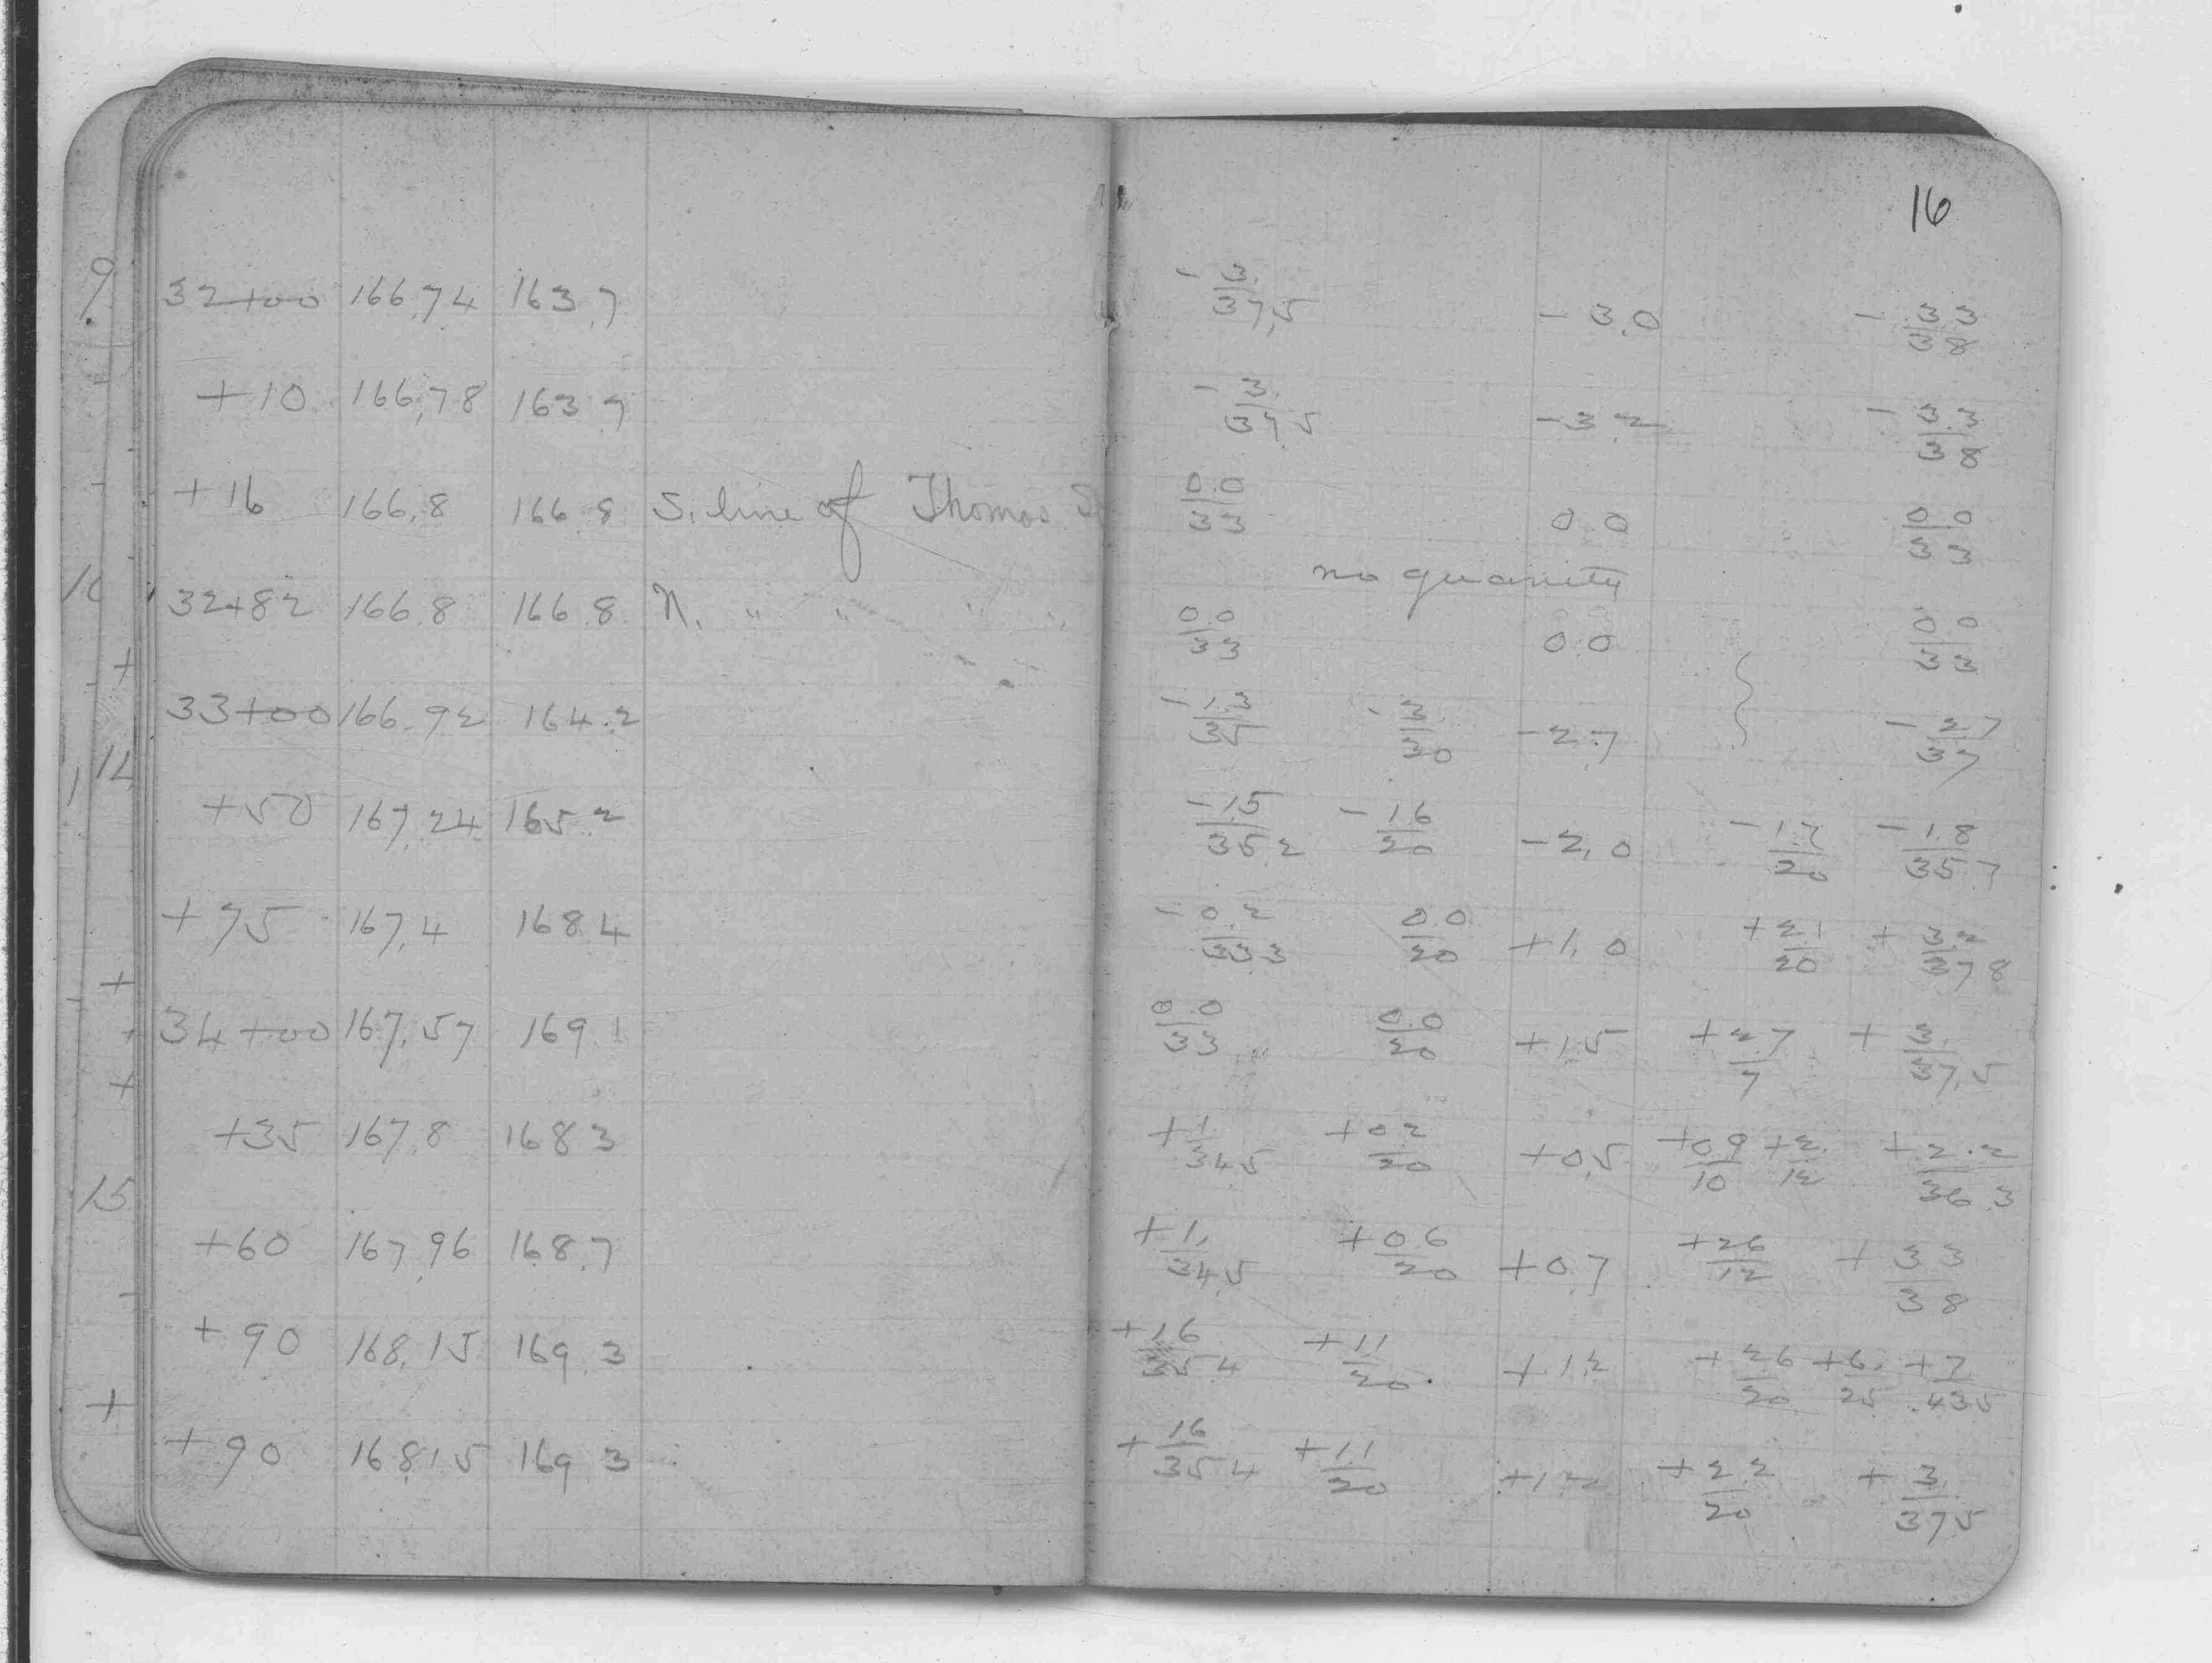 16
32+00 166.74 163.7 - 3./37.5 - 3.0 - 3.3/38
+10 166.78 163.7 - 3./37.5 - 3.2 - 3.3/38
+16 166.8 166.8 S. line of Thomas S 0.0/33 0.0 0.0/33
no quanity
32+82 166.8 166.8 N. " " " " 0.0/33 0.0 0.0/33
33+00 166.92 164.2 - 1.3/35 - 3./20 - 2.7 - 2.7/37
+50 167.24 165.2 - 1.5/35.2 - 1.6/20 - 2.0 - 1.7/20 - 1.8/35.7
+75 167.4 168.4 - 0.2/33.3 0.0/20 +1.0 +2.1/20 + 3.2/37.8
34+00 167.57 169.1 0.0/33 0.0/20 +1.5 +2.7/7 + 3./37.5
+35 167.8 168.3 +1./34.5 +0.2/20 +0.5 +0.9/10 +2./12 +2.2/36.3
+60 167.96 168.7 +1./34.5 +0.6/20 +0.7 +2.6/12 + 3.3/38
+90 168.15 169.3 +1.6/35.4 +1.1/20 +1.2 +2.6/20 +6./25 +7/43.5
+90 168.15 169.3 + 1.6/35.4 +1.1/20 +1.2 +2.2/20 + 3./37.5